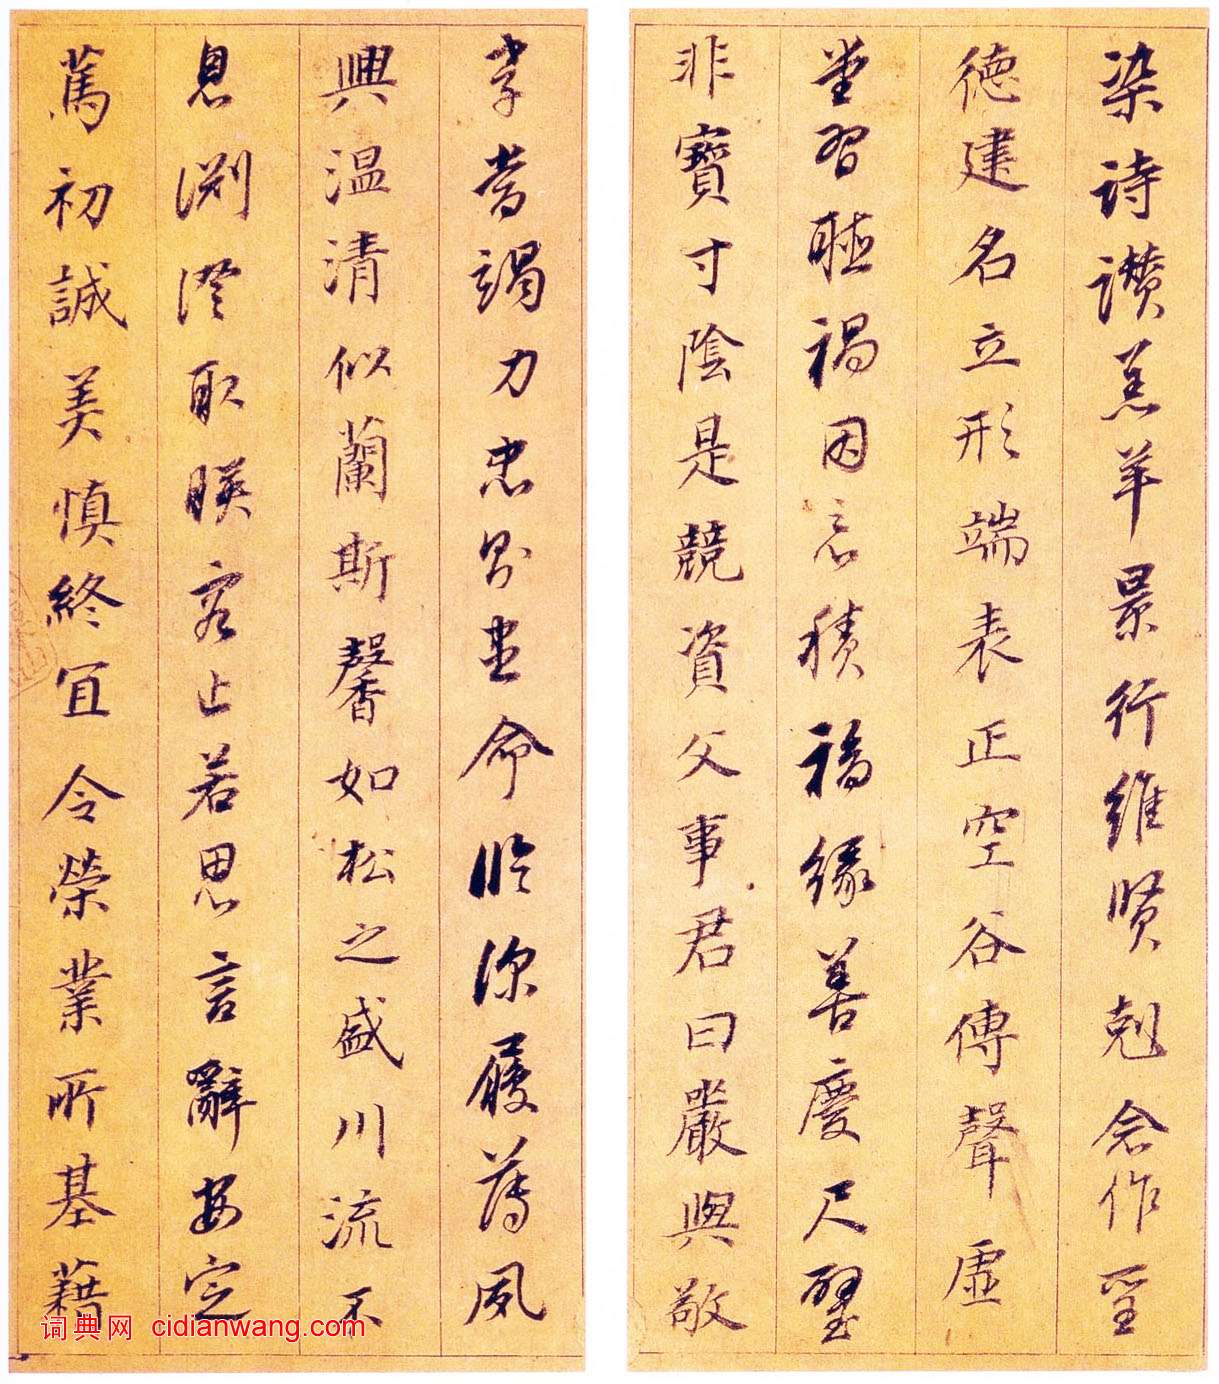 染詩讃羔羊景行維賢剋念作聖
德建名立形端表正空谷傳聲虛
堂習聴禍因惡積福緣善慶尺璧
非寶寸陰是競資父事君曰嚴與敬
孝當竭力忠則盡命臨深履薄夙
興温凊似蘭斯馨如松之盛川流不
息淵澄取暎容止若思言辭安定
篤初誠美慎終宜令榮業所基藉
词典网 cidianwang.com